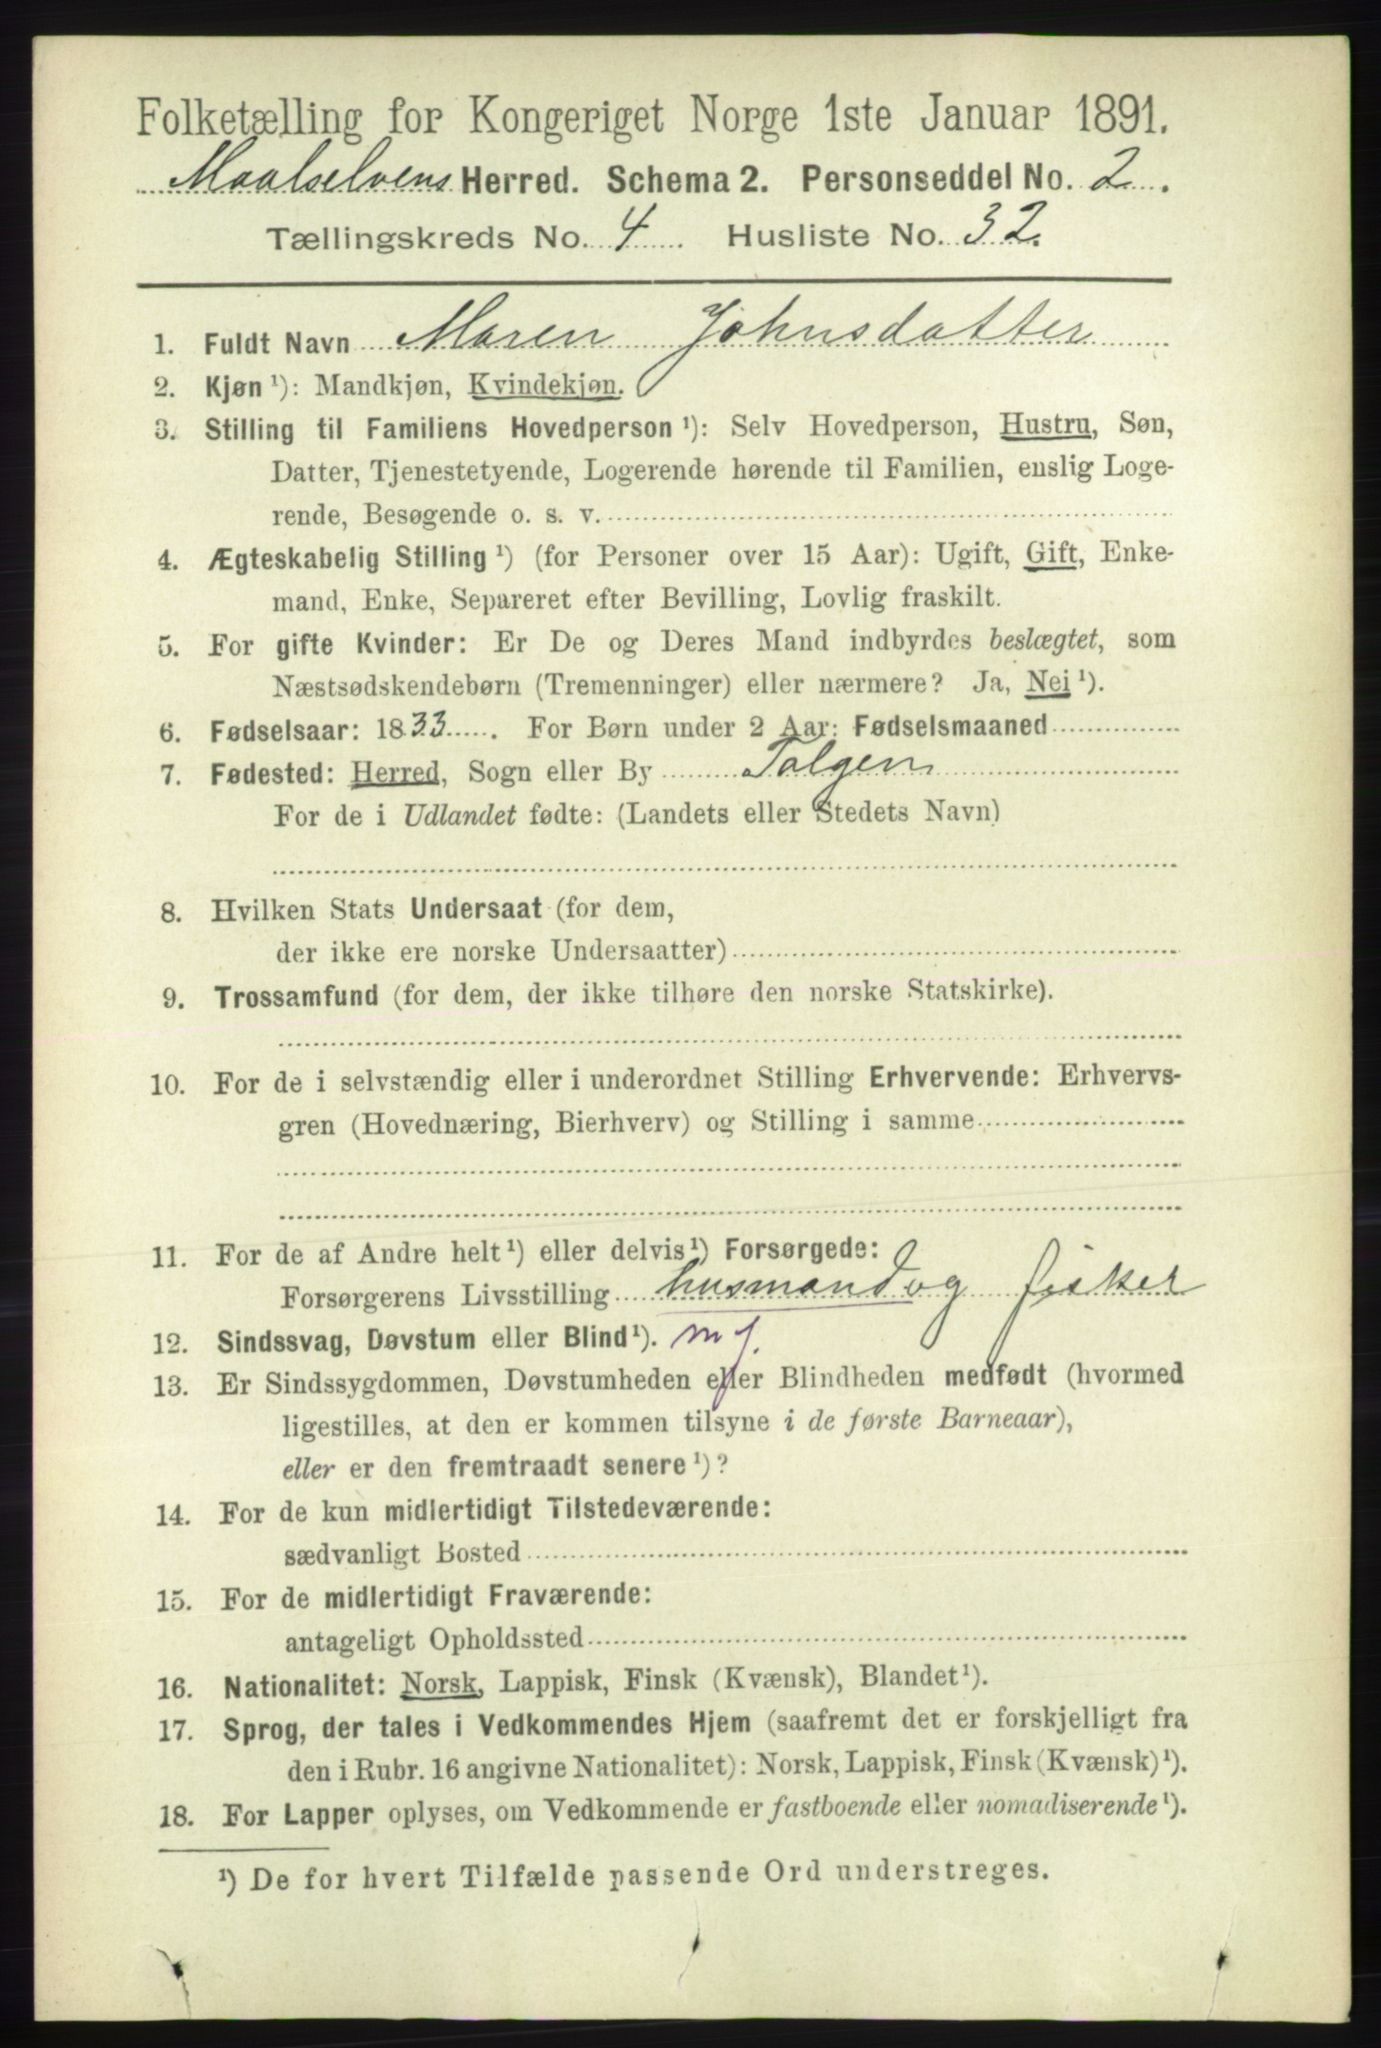 Folketælling for Kongeriget Norge 1ste Januar 1891.
Maalselvens Herred. Schema 2. Personseddel No. 2.
Tællingskreds No. 4 Husliste No. 32.
1. Fuldt Navn Maren Johnsdatter
2. Kjøn ¹): Mandkjøn, Kvindekjøn.
3. Stilling til Familiens Hovedperson ¹): Selv Hovedperson, Hustru, Søn,
Datter, Tjenestetyende, Logerende hørende til Familien, enslig Loge-
rende, Besøgende o. s. v.
4. Ægteskabelig Stilling ¹) (for Personer over 15 Aar): Ugift, Gift, Enke-
mand, Enke, Separeret efter Bevilling, Lovlig fraskilt.
5. For gifte Kvinder: Er De og Deres Mand indbyrdes beslægtet, som
Næstsødskendebørn (Tremenninger) eller nærmere? Ja, Nei ¹).
6. Fødselsaar: 1833. For Børn under 2 Aar: Fødselsmaaned
7. Fødested: Herred, Sogn eller By Tolgen
For de i Udlandet fødte: (Landets eller Stedets Navn)
8. Hvilken Stats Undersaat (for dem,
der ikke ere norske Undersaatter)
9. Trossamfund (for dem, der ikke tilhøre den norske Statskirke).
10. For de i selvstændig eller i underordnet Stilling Erhvervende: Erhvervs-
gren (Hovednæring, Bierhverv) og Stilling i samme
11. For de af Andre helt ¹) eller delvis ¹) Forsørgede:
Forsørgerens Livsstilling husmand og fisker
12. Sindssvag, Døvstum eller Blind ¹).
13. Er Sindssygdommen, Døvstumheden eller Blindheden medfødt (hvormed
ligestilles, at den er kommen tilsyne i de første Barneaar),
eller er den fremtraadt senere ¹)?
14. For de kun midlertidigt Tilstedeværende:
sædvanligt Bosted
15. For de midlertidigt Fraværende:
antageligt Opholdssted
16. Nationalitet: Norsk, Lappisk, Finsk (Kvænsk), Blandet ¹).
17. Sprog, der tales i Vedkommendes Hjem (saafremt det er forskjelligt fra
den i Rubr. 16 angivne Nationalitet): Norsk, Lappisk, Finsk (Kvænsk) ¹).
18. For Lapper oplyses, om Vedkommende er fastboende eller nomadiserende ¹).
¹) De for hvert Tilfælde passende Ord understreges.